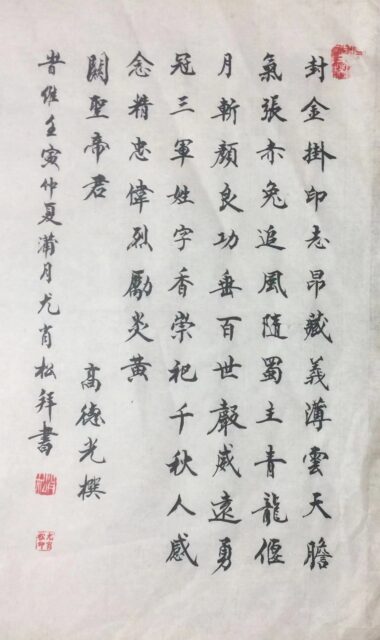 封金掛印志昂藏義薄雲天膽
氣張赤兔追風隨蜀主青龍偃
月斬顏良功垂百世聲威遠勇
冠三軍姓字香崇祀千秋人感
念精忠偉烈勵炎黃
關聖帝君
高德光撰
旹維壬寅仲夏蒲月尤肖松拜書
尤肖松印